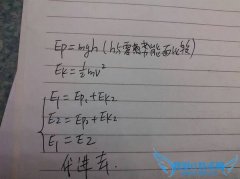 Ep=mgh(h与零势能面比较)
Ek=½mv²
E1=Ep1+Ek2
E2=Ep2+Ek2
E1=E2
代进去.